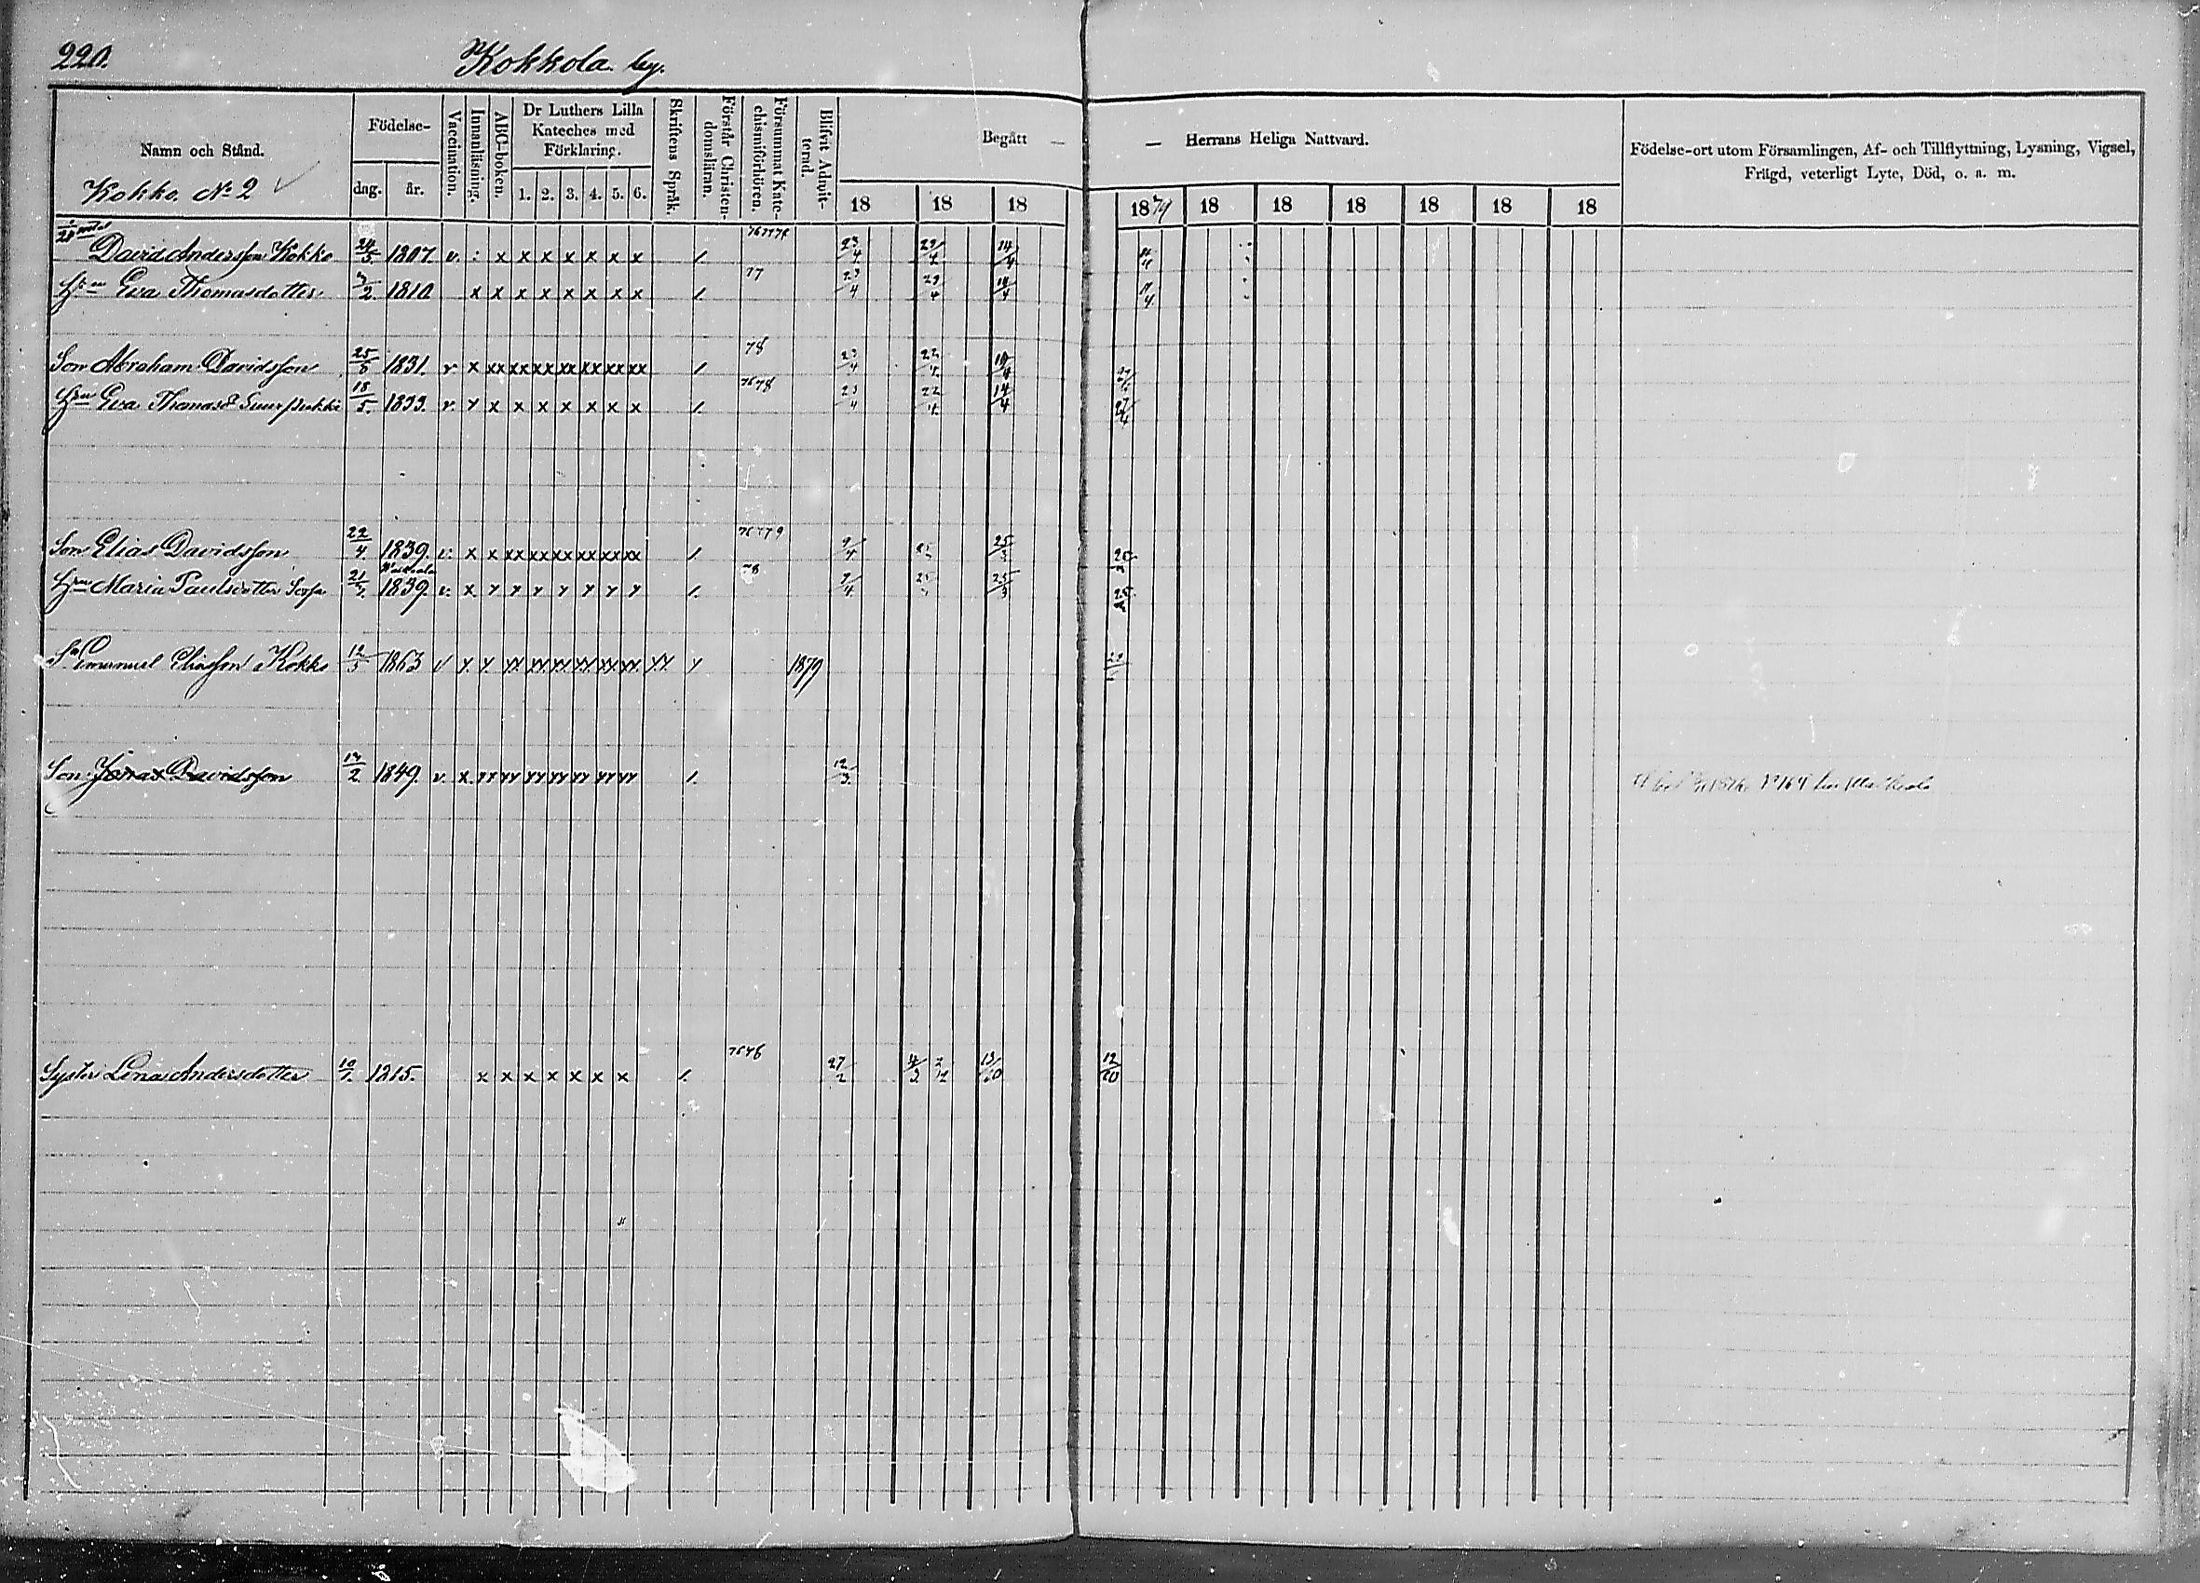 220.
Kokkola by.
Namn och Stånd.
Kokko. No 2
Födelse-
dag.
år.
Vaccination.
Innanläsning.
ABC-boken.
Dr Luthers Lilla
Kateches med
Förklaring.
1. 2. 3. 4. 5. 6.
Skriftens Språk.
Förstår Christen-
domsläran.
Försummat Kate-
chismiförhören.
Blifvit Admit-
terad.
Begått — — Herrans Heliga Nattvard.
18 18 18 1879 18 18 18 18 18 18
Födelse-ort utom Församlingen, Af- och Tillflyttning, Lysning, Vigsel,
Frägd, veterligt Lyte, Död, o. a. m.
David Andersson Kokko 24/5 1807. v. x x x x x x x 1. 76 77 78 23/4 14/4
Hru Eva Thomasdotter 3/2 1810 x x x x x x x x 1. 77 23/4 14/4
Son Abraham Davidsson 25/5 1831. v x xx xx xx xx xx xx xx 1 78 23/4 22/4
Hru Eva Thomasd Suurpukki 18/5. 1833. v. x x x x x x x 1. 76 78 23/4 22/4 14/4 27/4
Son Elias Davidsson 22/4 1839. v. x x xx xx xx xx xx xx 1. 76 77 9 9/4 25 25/3 25/3
Hru Maria Paulsdotter 21/7. 1839. v. x y y y y y y y 1. 78 9/4 25 25/3 25
Sn Emanuel Eliasson Kokko 12/5 1863 v y y. yy yy yy yy yy yy yy y 1879
Son Jonas Davidsson 2 1849. v. x. yy yy yy yy yy yy yy 1. 12/3.
Syster Lena Andersdotter 10/1. 1815. x x x x x x x 1. 76 78 27/2 4/3 13/10 12/20